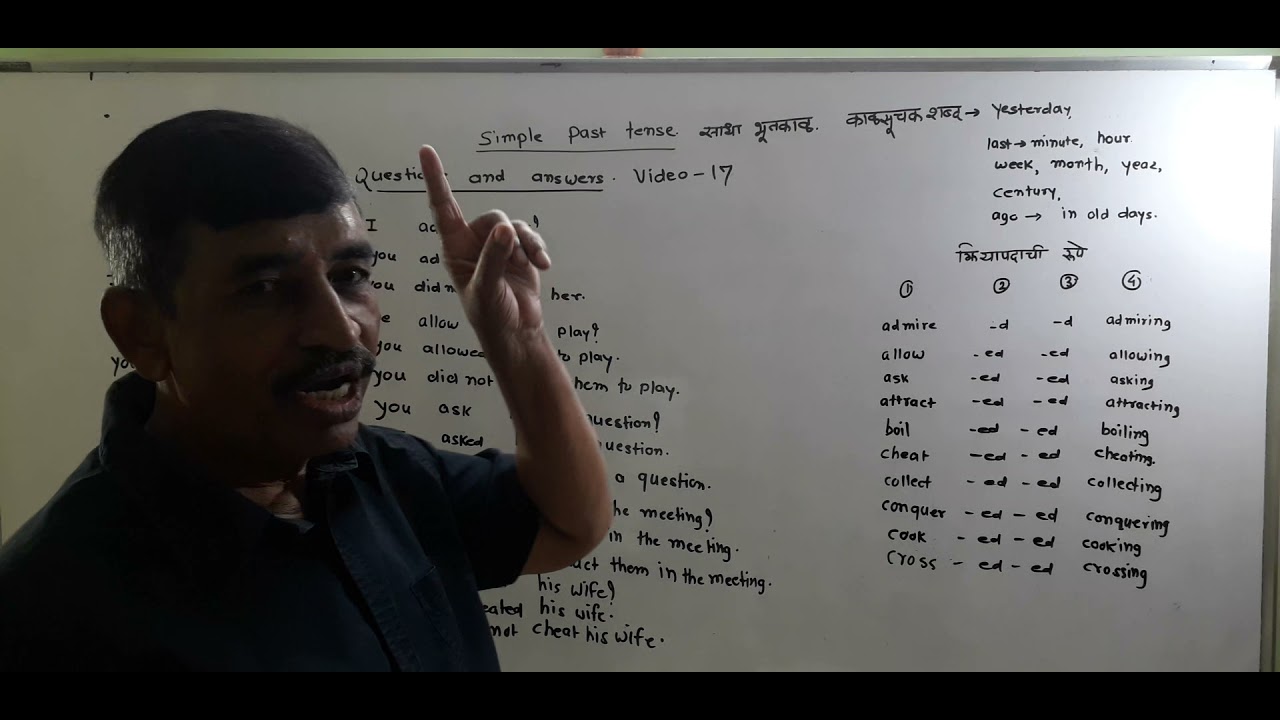 Simple Past tense. साधा भूतकाळ. काळसूचक शब्द → Yesterday,
last → minute, hour.
week, month, year,
century,
ago → in old days.
Questi and answers. Video-17
I ad ?
you ad
you did her.
allow play?
you allowed to play.
you did not hem to play.
you ask uestion?
asked uestion.
a question.
he meeting?
in the meeting.
act them in the meeting.
his wife?
eated his wife.
not cheat his wife.
क्रियापदाची रुपे
① ② ③ ④
admire -d -d admiring
allow -ed -ed allowing
ask -ed -ed asking
attract -ed -ed attracting
boil -ed -ed boiling
cheat -ed -ed cheating.
collect -ed -ed collecting
conquer -ed -ed conquering
cook -ed -ed cooking
cross -ed -ed crossing